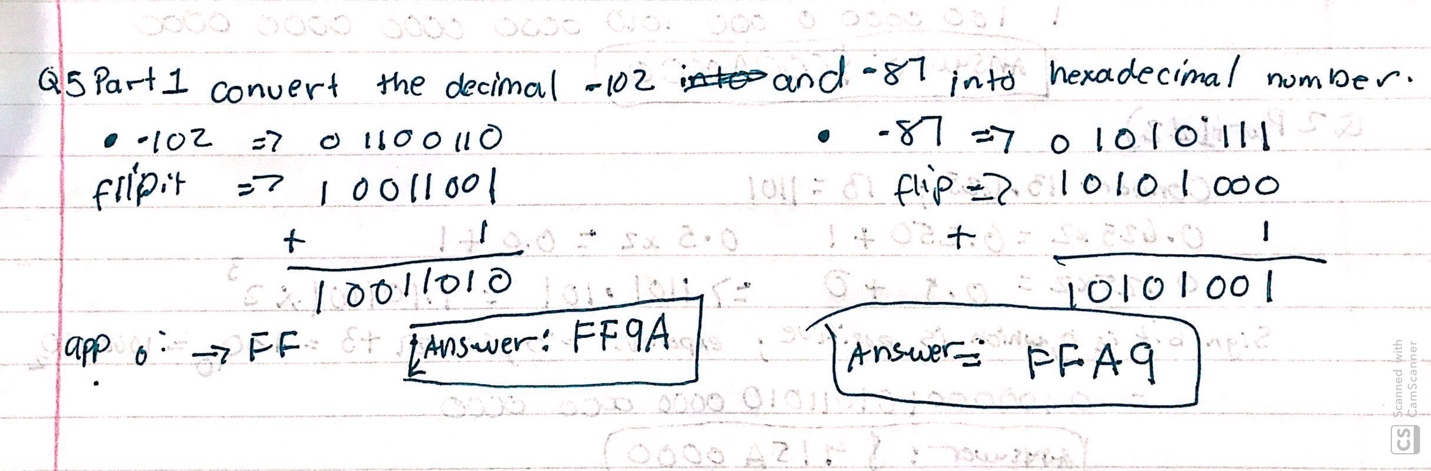 Q5 Part 1 convert the decimal -102 into and -87 into hexadecimal number.
• -102 => 01100110
flip it => 10011001
+ 1
10011010
app o: → FF
Answer: FF9A
• -87 => 01010111
flip => 10101000
+ 1
10101001
Answer: FFA9
CS Scanned with
CamScanner